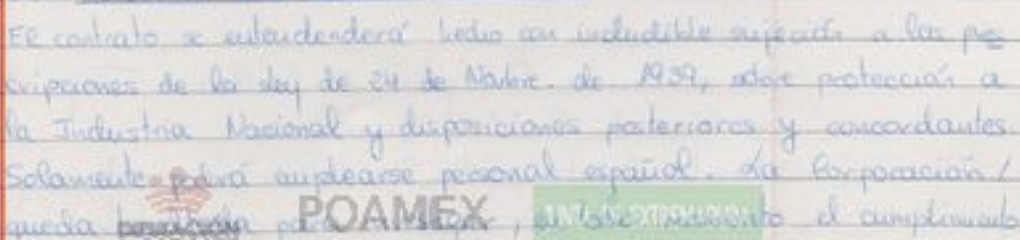 El contrato se entenderá hecho con ineludible sujeción a las pres
cripciones de la Ley de 24 de Novbre. de 1939, sobre protección a
la Industria Nacional y disposiciones posteriores y concordantes.
Solamente podrá emplearse personal español. La Corporación /
queda para, en todo momento el cumplimiento
POAMEX